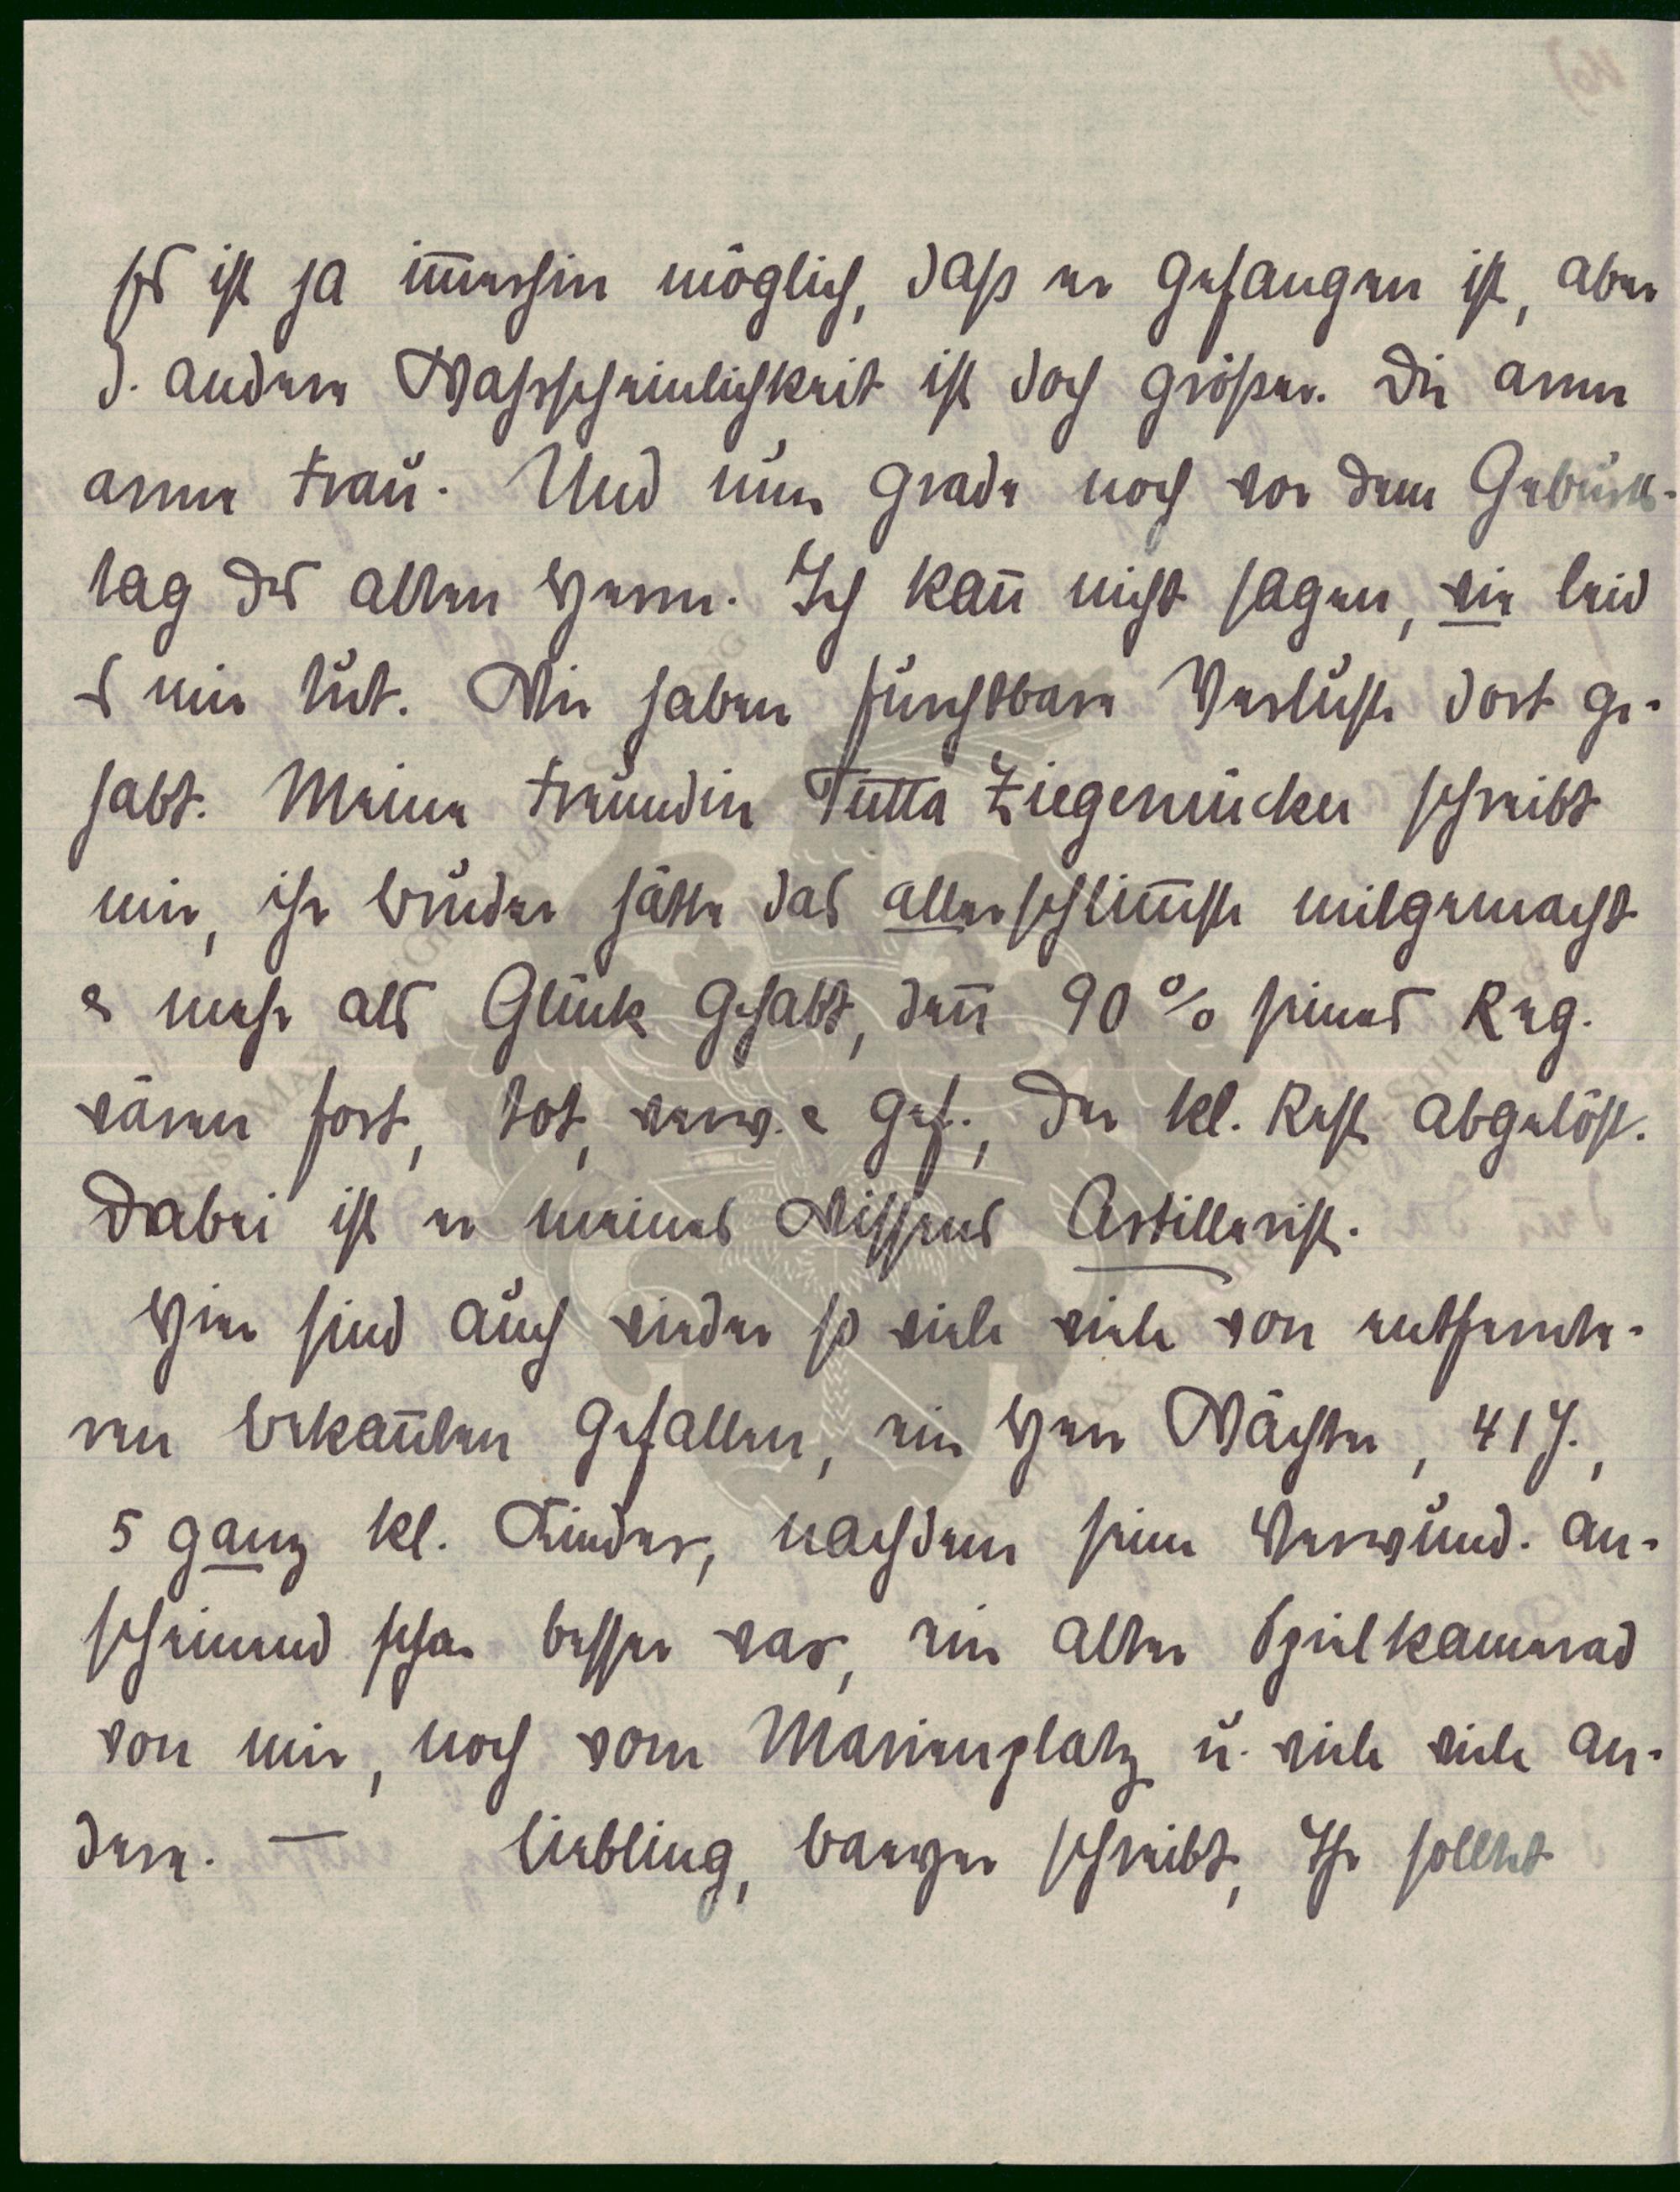 Es ist ja im̄erhin möglich, daß er gefangen ist, aber
d. andere Wahrscheinlichkeit ist doch größer. Die arme
arme Frau. Und nun grade noch vor dem Geburts-
tag des alten Herrn. Ich kan̄ nicht sagen, wie leid
es mir tut. Wir haben furchtbare Verluste dort ge-
habt. Meine Freundin Tutta Ziegenrücker schreibt
mir, ihr Bruder hätte das allerschlim̄ste mitgemacht
& mehr als Glück gehabt, den̄ 90 % seines Reg.
wären fort, tot, verw. & gef., der kl. Rest abgelöst.
Dabei ist er meines Wissens Artillerist.
Hier sind auch wieder so viele viele von entfernte-
ren Bekan̄ten gefallen, ein Herr Wächter, 41 J.,
5 ganz kl. Kinder, nachdem seine Verwund. an-
scheinend schon besser war, ein alter Spielkamerad
von mir, noch vom Marienplatz u. viele viele an-
dere. — Liebling, schreibt, Ihr solltet